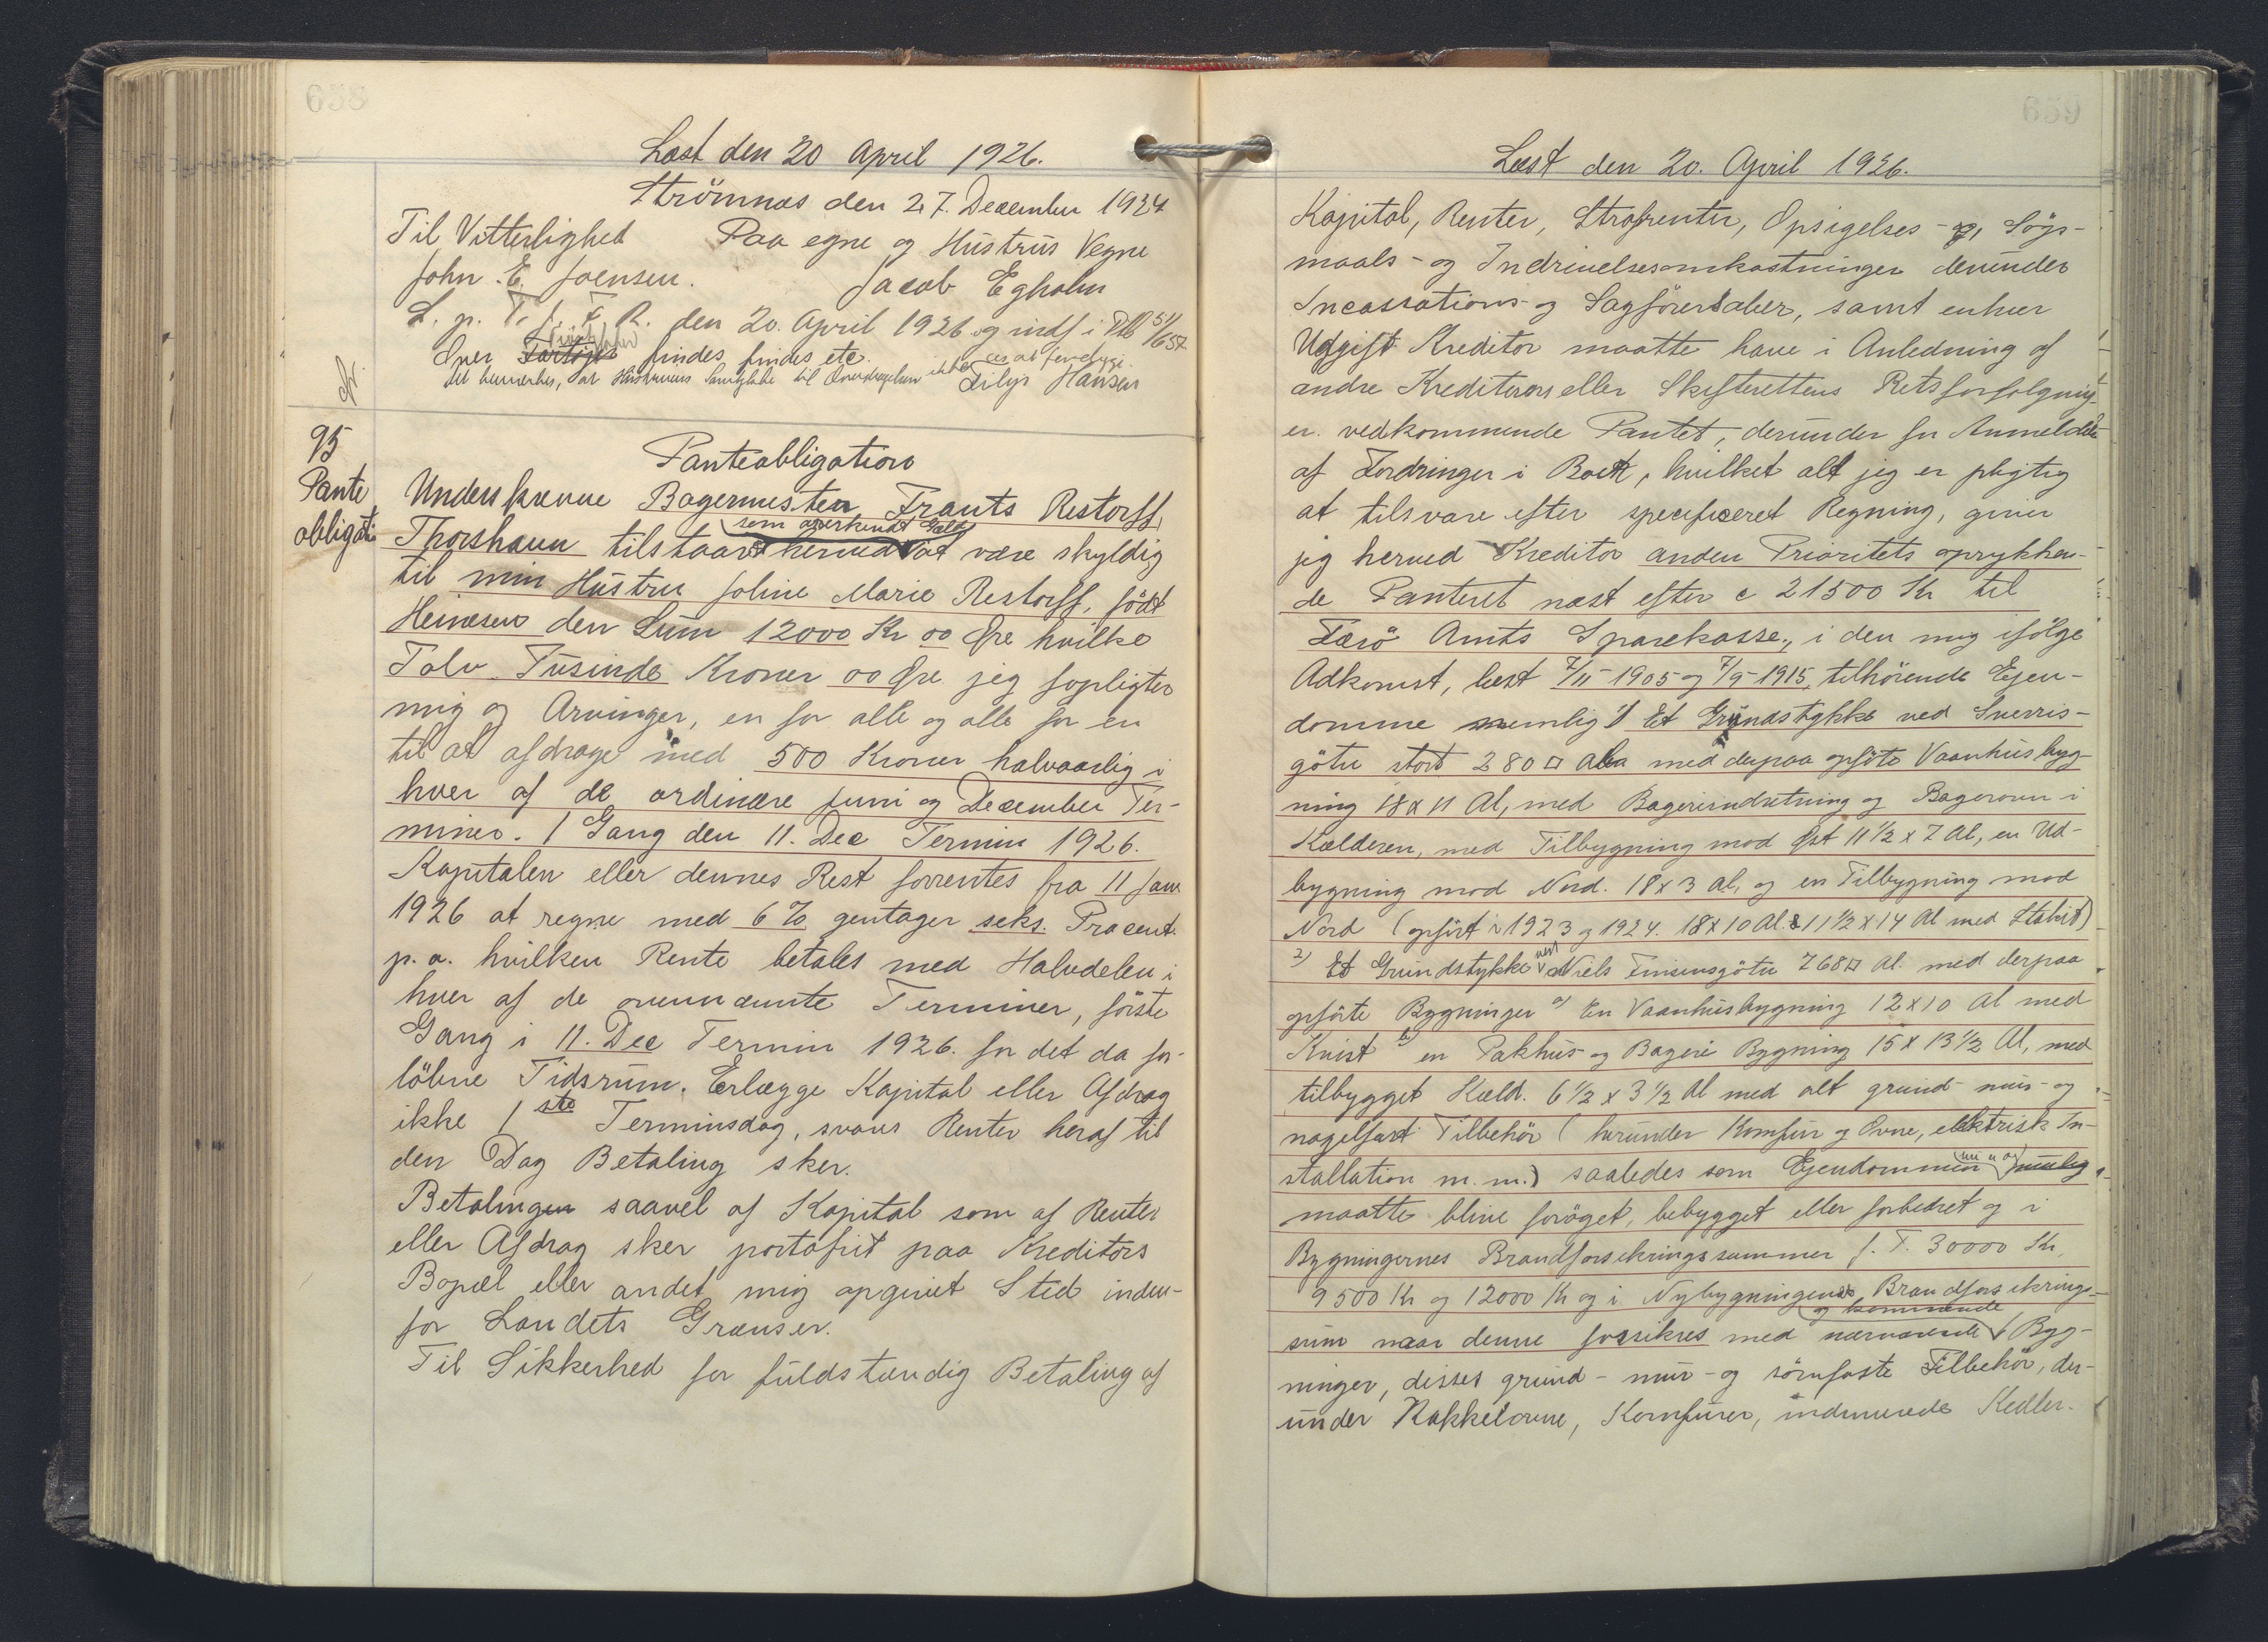 638
Læst den 20 April 1926.
Strömnæs den 27. December 1924
Til Vitterlighed Paa egne og Hustrus Vegne
John. E. Joensen. Jacob Egholm
L. p. T. f. F. R. den 20. April 1926 og indf i Ptb 51/657
Over Fartöjet findes, findes etc.
Det bemærkes, at Hustruens Samtykke til Overdragelsen ikke ses at foreligge.
Filip Hansen
95
Pante
obligati
Panteobligation
Underskrevne Bagermester Frants Restorff,
som anerkendt Gæld
Thorshavn tilstaar herved at være skyldig
til min Hustru Joline Marie Restorff, født
Heinesen den Sum 12000 Kr 00 Øre hvilke
Tolv Tusinde Kroner 00 Øre jeg forpligter
mig og Arvinger, en for alle og alle for en
til at afdrage med 500 Kroner halvaarlig i
hver af de ordinære Juni og December Ter-
miner. 1 Gang den 11. Dec Termin 1926.
Kapitalen eller dennes Rest forrentes fra 11 Jan
1926 at regne med 6% gentager seks. Procent.
p. a. hvilken Rente betales med Halvdelen i
hver af de ovennævnte Terminer, förste
Gang i 11. Dec Termin 1926. for det da for-
löbne Tidsrum. Erlægge Kapital eller Afdrag
ikke 1ste Terminsdag, svares Renter heraf til
den Dag Betaling sker.
Betalingen saavel af Kapital som af Renter
eller Afdrag sker portofrit paa Kreditors
Bopæl eller andet mig opgivet Sted inden-
for Landets Grænser.
Til Sikkerhed for fuldstændig Betaling af
659
Læst den 20. April 1926.
Kapital, Renter, Strafrenter, Opsigelses- og, Sögs-
maals- og Indrivelsesomkostninger derunder
Incassations- og Sagförersalær, samt enhver
Udgift Kreditor maatte have i Anledning af
andre Kreditorers eller Skifterettens Retsforfølgning-
er. vedkommende Pantet, derunder for Anmeldelse
af Fordringer i Boet, hvilket alt jeg er pligtig
at tilsvare efter specificeret Regning, giver
jeg herved Kreditor anden Prioritets oprykken-
de Panteret næst efter c 21500 Kr til
Færö Amts Sparekasse, i den mig ifölge
Adkomst, læst 7/11 1905 og 7/9 1915, tilhörende Ejen-
domme nemlig 1) Et Grundstykke ved Sverris-
götu stort 280 □ Alen med derpaa opförte Vaanhusbyg-
ning 18 x 11 Al, med Bageriindretning og Bagerovn i
Kælderen, med Tilbygning mod Øst 11½ x 7 Al, en Ud-
bygning mod Nord. 18 x 3 Al, og en Tilbygning mod
Nord (opfört i 1923 og 1924. 18 x 10 Al. & 11½ x 14 Al med Stakit)
2) Et Grundstykke ved Niels Finsensgötu 768 □ Al. med derpaa
opförte Bygninger a) En Vaanhusbygning 12 x 10 Al med
Kvist b) en Pakhus- og Bageri Bygning 15 x 13½ Al, med
tilbygget Kæld. 6½ x 3½ Al med alt grund- mur- og
nagelfast Tilbehör (herunder Komfur og Ovne, elektrisk In-
stallation m. m.) saaledes som Ejendommen nu er og
maatte blive foröget, bebygget eller forbedret og i
Bygningernes Brandforsikringssummer f. T. 30000 Kr,
9500 Kr og 12000 Kr og i Nybygningens Brandforsikrings-
og kommende
sum naar denne forsikres med nærværende Byg-
ninger, disses grund- mur- og sömfaste Tilbehör, der-
under Kakkelovne, Komfurer, indmurede Kedler.